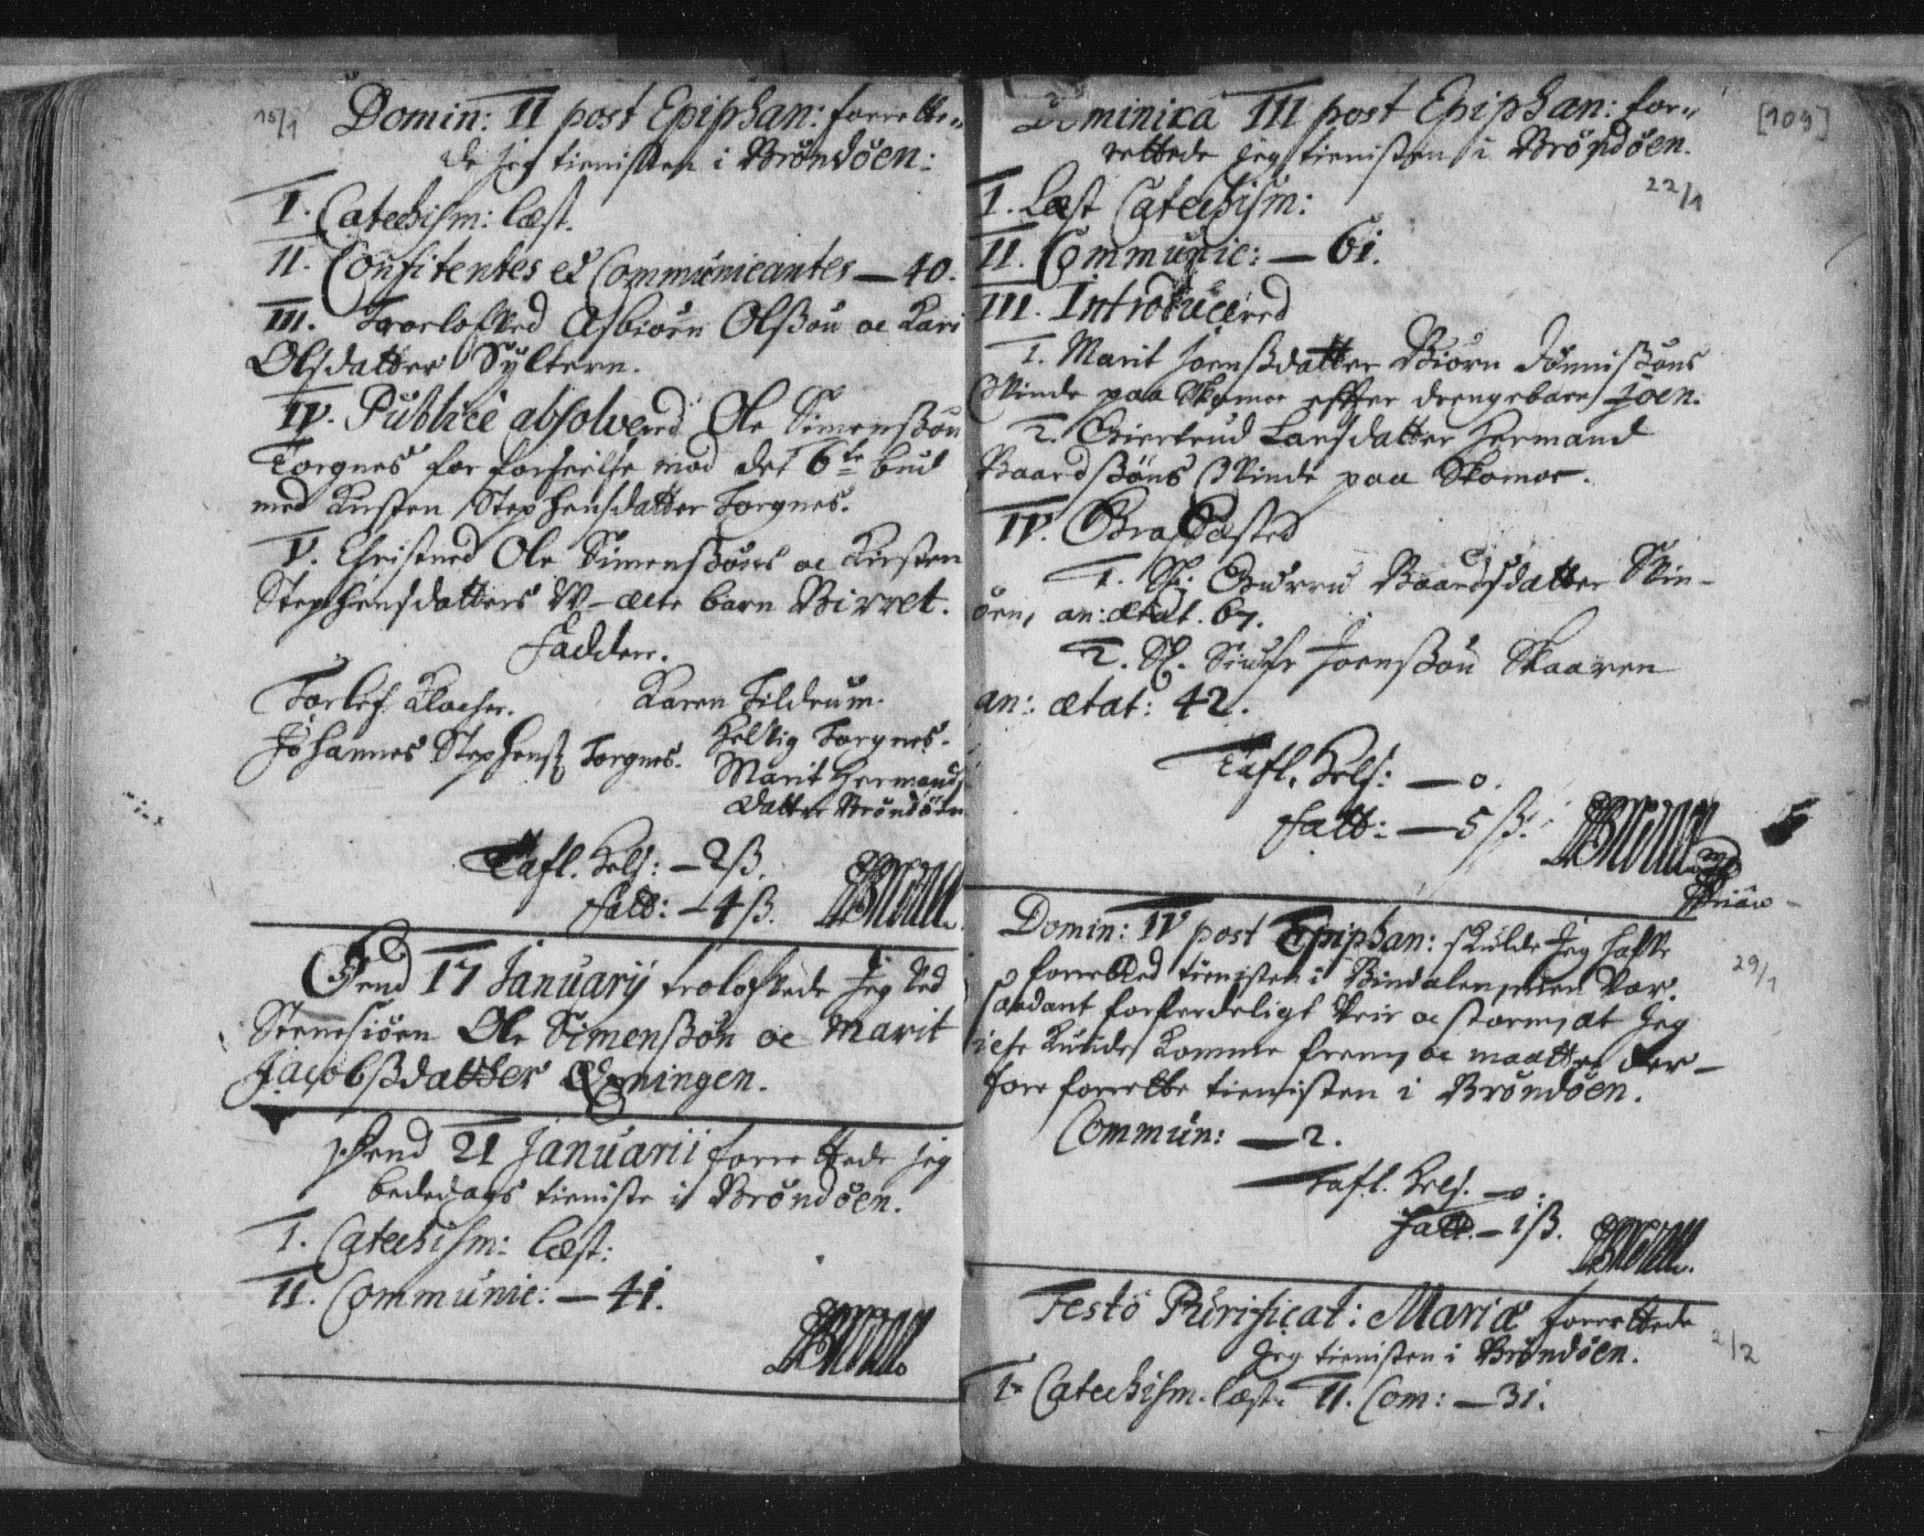 15/1
Domin: II post Epiphan: forrette„
de jeg tienisten i Brøndøen:
I. Catechism: læst.
II. Confitentes et Communicantes — 40.
III. Troelofved Asbiørn Olßøn oc Kari
Olsdatter Syltern.
IV. Publicè absolverd Ole Simenßøn
Torgnes for forseelse mod det 6te bud
med Kirsten Stephensdatter Torgnes.
V. Christned Ole Simenßøns oc Kirsten
Stephensdatters W-ecte barn Birret.
Faddere.
Torlef Klocher. Karen Tildrum.
Johannes Stephens: Torgnes. Helvig Torgnes.
Marit Hermands
datter Brøndøen
Tafl. Hels: — 2ß.
Fatt: — 4ß.
Dend 17 Januarij trolofvede jeg ved
Stenesiøen Ole Simenßøn oc Marit
Jacobßdatter
Dend 21 Januarii forrettede jeg
bededags tieniste i Brøndøen.
I. Catechism: læst:
II. Communic: — 41.
Dominica III post Epiphan: for„
rettede jeg tienisten i Brøndøen.
[109]
22/1
I. Læst Catechism:
II. Communic: — 61.
III. Introducered
1. Marit Joenßdatter Biørn Jønnißøns
Qvinde paa Skomoe effter drengebarn Joen.
2. Giertrud Larsdatter Hermand
Baardßøns Qvinde paa Skomoe.
IV. Grafæsted
1. Sl. Gurru Baardsdatter
øen, an: ætat. 67.
2. Sl. Siufr Joenßøn Skaaren
an: ætat: 42.
Tafl. Hels: — 0.
Fatt: — 5ß.
Domin: IV post Epiphan: skulde jeg hafve
forretted tienisten i Bindalen, men var
saadant forferdeligt veir oc storm, at jeg
icke kunde komme frem, oc maatte der-
fore forrette tienisten i Brøndøen.
29/1
Commun: — 2.
Tafl. Hels. — 0.
Fatt. — 1ß.
Festo Purificat: Mariæ forrettede
jeg tienisten i Brøndøen.
2/2
I. Catechism. læst. II. Com: — 31.